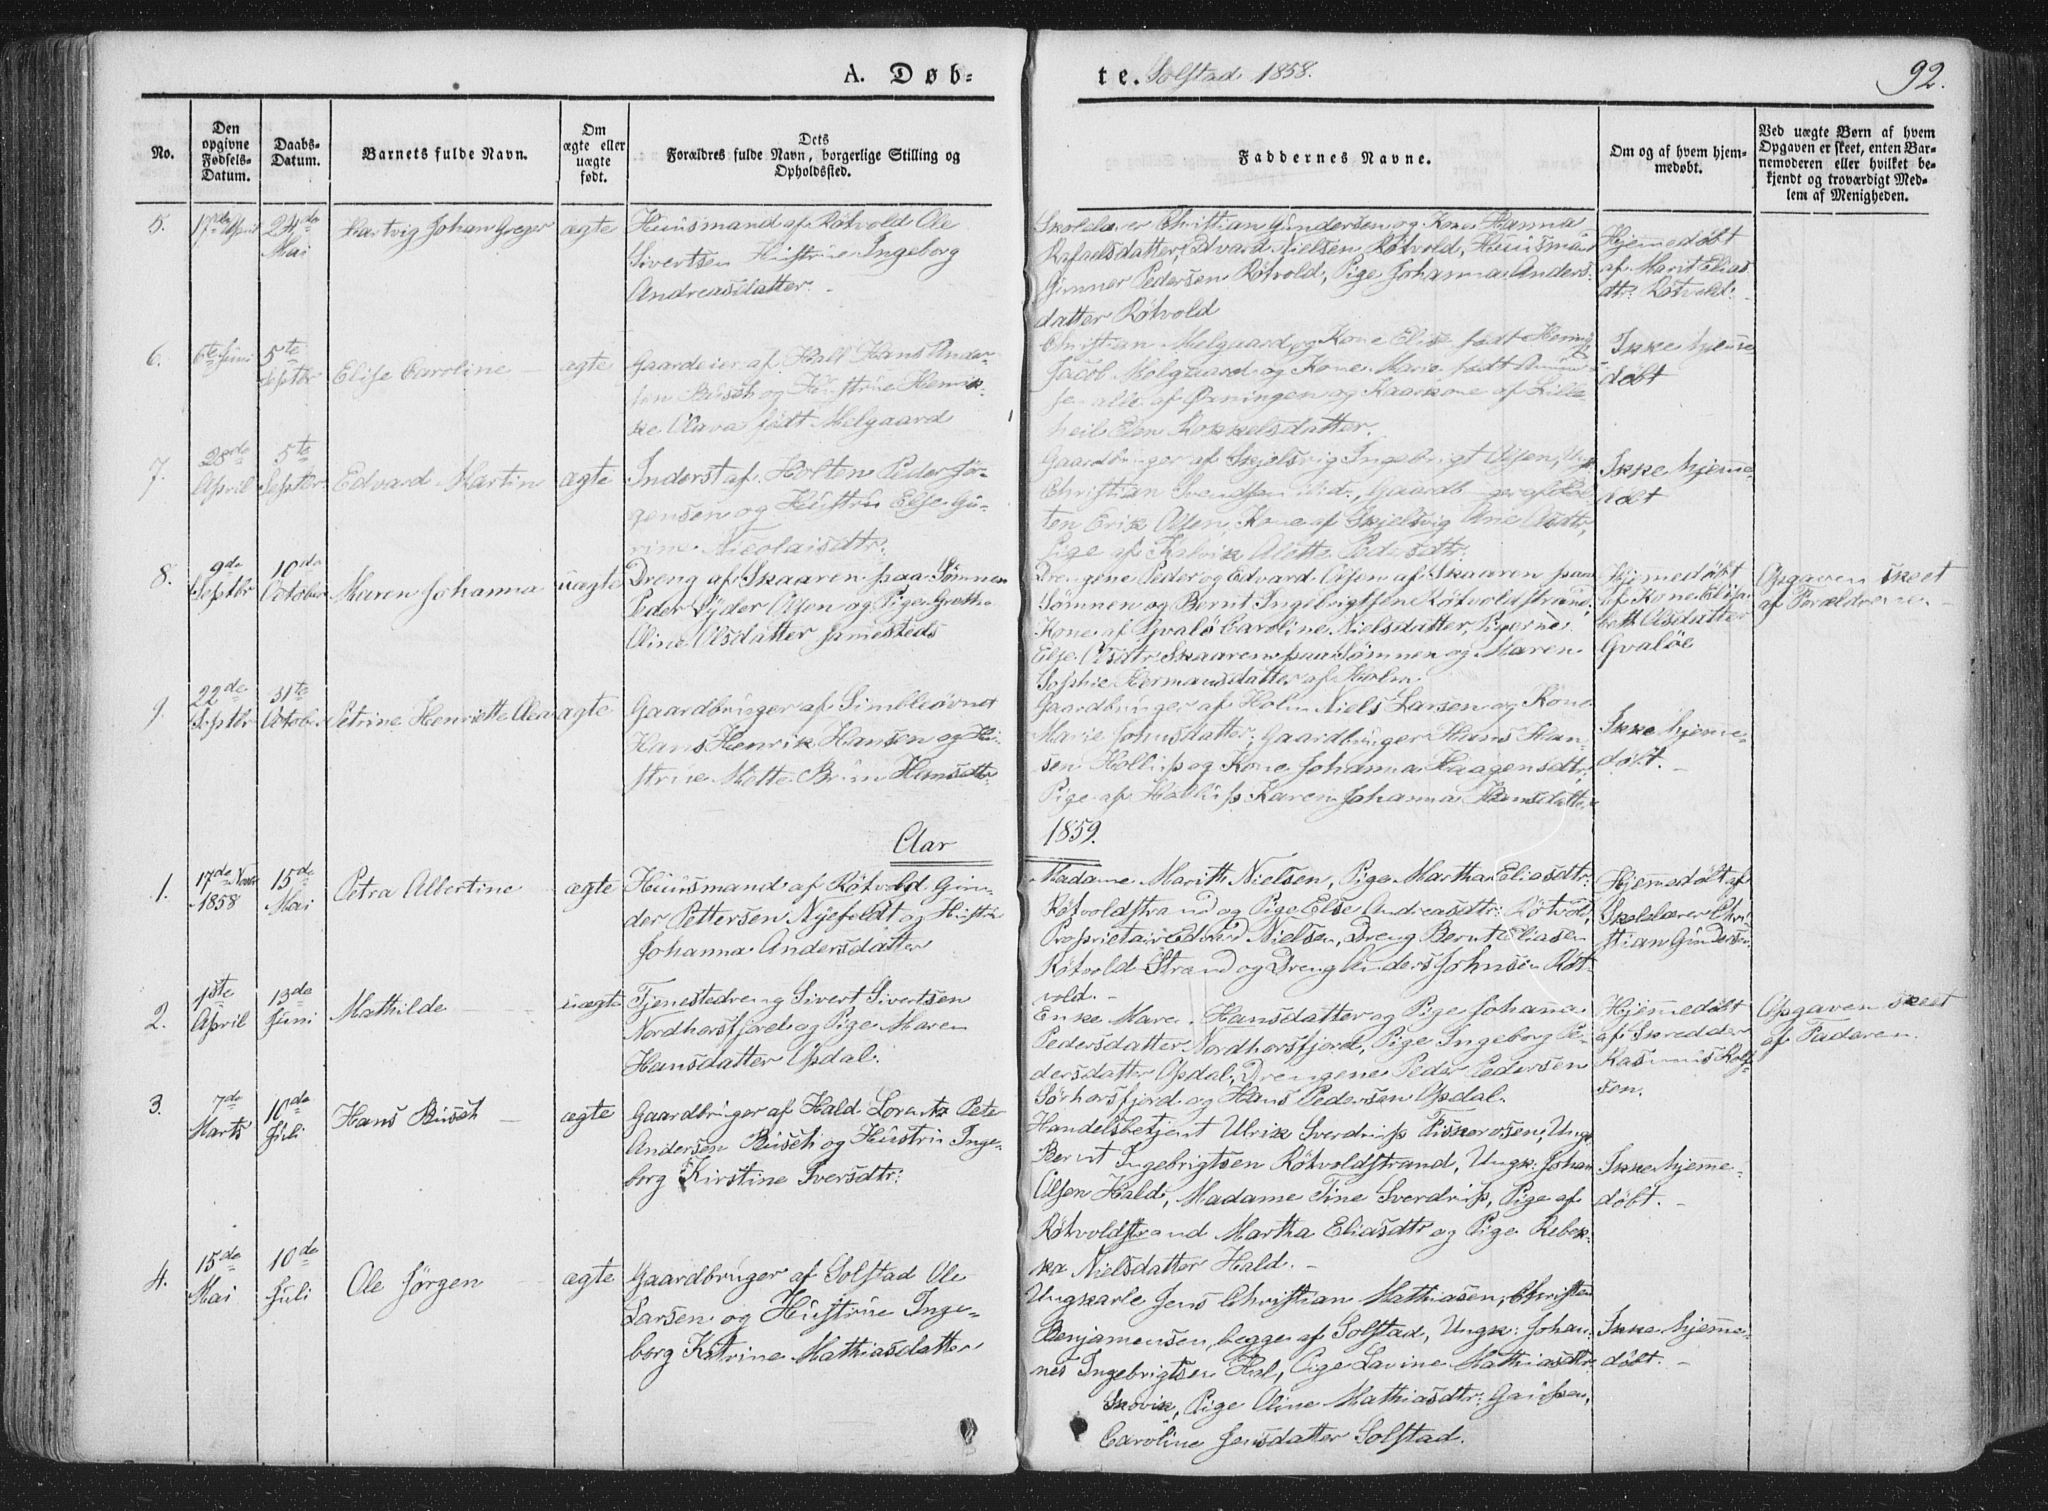 A. Døb=
te. Solstad 1858.
92.
No.
Den opgivne Fødsels-Datum.
Daabs-Datum.
Barnets fulde Navn.
Om ægte eller uægte født.
Dets Forældres fulde Navn, borgerlige Stilling og Opholdssted.
Faddernes Navne.
Om og af hvem hjemmedøbt.
Ved uægte Børn af hvem Opgaven er skeet, enten Barnemoderen eller hvilket bekjendt og troværdigt Medlem af Menigheden.
5.
17de April
24de Mai
Hartvig Johan Greger
ægte
Huusmand af Røtvold Ole
Sivertsen Hustrue Ingeborg
Andreasdatter.
Skolelærer Christian Gundersen og Kone Hanna
Rafaelsdatter, Edvard Nielsen Røtvold, Huusmand
Gunner Pedersen Røtvold, Pige Johanna Anders-
datter Røtvold
Hjemmedøbt
af Marit Elias
dtr: Røtvold.
6.
6te Juni
5te Septbr
Elise Caroline
ægte
Gaardeier af Hald Hans Ander-
sen Busch og Hustrue Henrik-
ke Olava født Melgaard
Christian Melgaard og Kone Elise født
Jacob Molgaard og Kone Marie født
alle af Ørningen og Kaarkone af Lille
heil Elen Kokkelsdatter.
Ikke hjemme
døbt
7.
28de April
5te Septbr
Edvard Martin
ægte
Inderst af Holten Peder Jør-
gensen og Hustru Else Gu-
rine Nicolaisdtr:
Gaardbruger af Skjelsvig Ingebrigt Olsen, Ungk
Christian Svendsen ibid., Gaardbruger af Hol-
ten Erik Olsen, Kone af Skjelsvig Ane Olsdtr,
Pige af Kalvik Alette Pedersdtr:
Ikke hjemme
døbt
8.
9de Septbr
10de October
Maren Johanna
uægte
Dreng af Skaaren paa Sømnen
Peder Ryder Olsen og Pige Grethe
Oline Olsdatter sammesteds
Drengene Peder og Edvard Olsen af Skaaren paa
Sømnen og Bernt Ingebrigtsen Røtvoldstrand,
Kone af Gvalø Caroline Nielsdatter, Pigerne
Else Olsdtr Skaaren paa Sømnen og Maren
Sophie Hermansdatter af Holm.
Hjemmedøbt
af Kone Elisa-
beth Olsdatter
Gvaløe
Opgaven skeet
af Forældrene.
9.
22de Septbr
31te October
Petrine Henriette Olea
ægte
Gaardbruger af Simbleøvnet
Hans Henrik Hansen og Hu-
strue Mette Brun Hansdtr.
Gaardbruger af Holm Niels Larsen og Kone
Marie Johnsdatter, Gaardbruger Hans Han-
sen Hollup og Kone Johanna Haagensdtr,
Pige af Hollup Karen Johanna Hansdatter
Ikke hjemme-
døbt.
Aar
1859.
1.
17de Novbr 1858
15de Mai
Petra Albertine
ægte
Huusmand af Røtvold Gun-
der Pettersen Nyefoldt og Hustru
Johanna Andersdatter
Madame Marith Nielsen, Pige Martha Eliasdtr:
Røtvoldstrand og Pige Else Andreasdtr: Røtvold,
Proprietair Edvard Nielsen, Dreng Bernt Eliasen
Røtvold Strand og Dreng Anders Johnsen Røt-
vold.
Hjemmedøbt af
Skolelærer Chri-
stian Gundersen
2.
1ste April
13de Juni
Mathilde
uægte
Tjenestedreng Sivert Sivertsen
Nordhorsfjord og Pige Maren
Hansdatter Opdal.
Enke Maren Hansdatter og Pige Johanna
Pedersdatter Nordhorsfjord, Pige Ingeborg Pe-
dersdatter Opdal, Drengene Peder Pedersen
Sørhorsfjord og Hans Pedersen Opdal.
Hjemmedøbt
af Skredder
Rasmus Rolf-
sen.
Opgaven skeet
af Faderen.
3.
7de Marts
10de Juli
Hans Busch
ægte
Gaardbruger af Hald Lorentz Peter
Andersen Busch og Hustru Inge-
borg Kirstine Iversdtr:
Handelsbetjent Ulrik Sverdrup Fiskerosen, Ungk
Bernt Ingebrigtsen Røtvoldstrand, Ungk: Johan
Olsen Hald, Madame Tine Sverdrup, Pige af
Røtvoldstrand Martha Eliasdtr og Pige Rebek-
ka Nielsdatter Hald.
Ikke hjemme-
døbt.
4.
15de Mai
10de Juli
Ole Jørgen
ægte
Gaardbruger af Solstad Ole
Larsen og Hustrue Inge-
borg Katrine Mathiasdatter
Ungkarle Jens Christian Mathiasen, Christen
Benjaminsen, begge af Solstad, Ungk: Johan-
nes Ingebrigtsen Hul, Pige Lavine Mathiasdtr
Skovik, Pige Oline Mathiasdtr:
Caroline Jensdatter Solstad.
Ikke hjemme-
døbt.